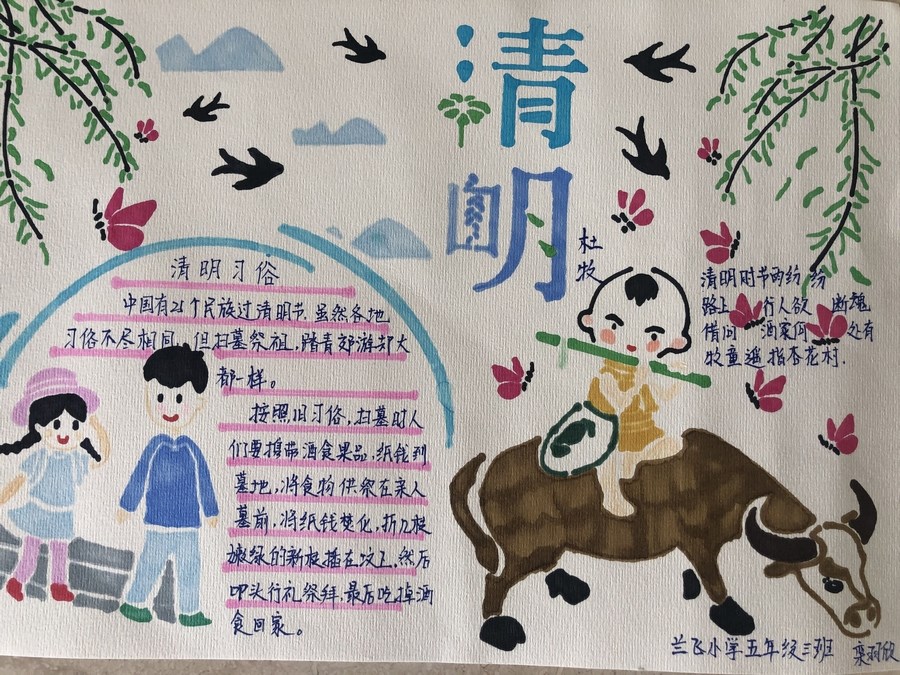 清明
清明习俗
中国有25个民族过清明节.虽然各地
习俗不尽相同,但扫墓祭祖,踏青郊游却大
都一样。
按照旧习俗,扫墓时人
们要携带酒食果品,纸钱到
墓地,将食物供祭在亲人
墓前,将纸钱焚化,折几枝
嫩绿的新枝插在坟上,然后
叩头行礼祭拜.最后吃掉酒
食回家。
杜
牧
清明时节雨纷纷
路上行人欲断魂
借问酒家何处有
牧童遥指杏花村.
兰飞小学五年级三班